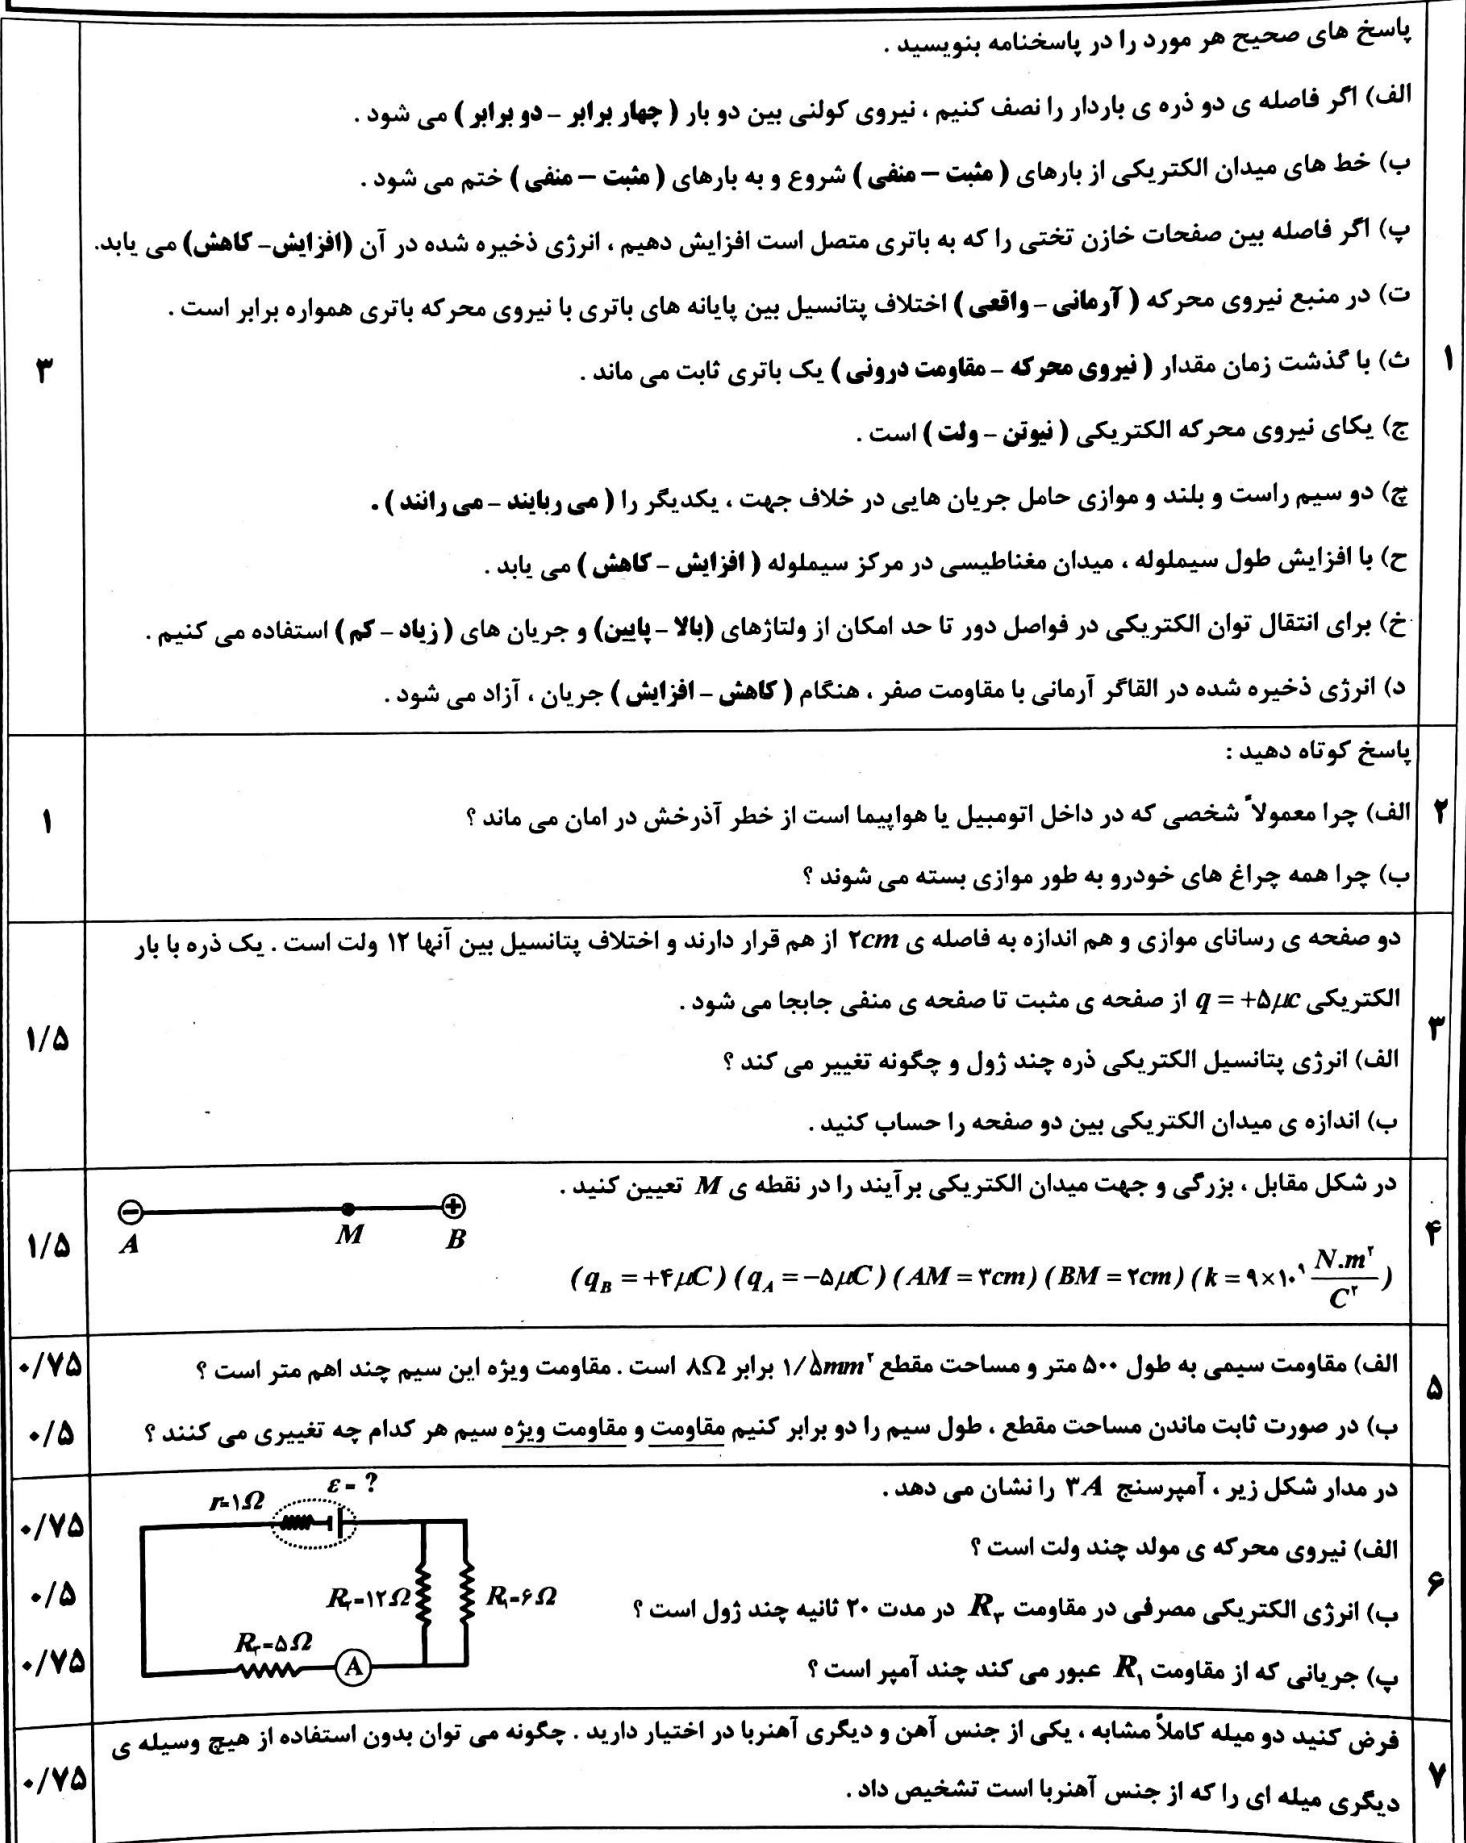 پاسخ های صحیح هر مورد را در پاسخنامه بنویسید .
الف) اگر فاصله ی دو ذره ی باردار را نصف کنیم ، نیروی کولنی بین دو بار ( چهار برابر – دو برابر ) می شود .
ب) خط های میدان الکتریکی از بارهای ( مثبت – منفی ) شروع و به بارهای ( مثبت – منفی ) ختم می شود .
پ) اگر فاصله بین صفحات خازن تختی را که به باتری متصل است افزایش دهیم ، انرژی ذخیره شده در آن (افزایش- کاهش) می یابد.
ت) در منبع نیروی محرکه ( آرمانی – واقعی ) اختلاف پتانسیل بین پایانه های باتری با نیروی محرکه باتری همواره برابر است .
ث) با گذشت زمان مقدار ( نیروی محرکه – مقاومت درونی ) یک باتری ثابت می ماند .
۱
۳
ج) یکای نیروی محرکه الکتریکی ( نیوتن – ولت ) است .
چ) دو سیم راست و بلند و موازی حامل جریان هایی در خلاف جهت ، یکدیگر را ( می ربایند – می رانند ) .
ح) با افزایش طول سیملوله ، میدان مغناطیسی در مرکز سیملوله ( افزایش – کاهش ) می یابد .
خ) برای انتقال توان الکتریکی در فواصل دور تا حد امکان از ولتاژهای (بالا – پایین) و جریان های ( زیاد – کم ) استفاده می کنیم .
د) انرژی ذخیره شده در القاگر آرمانی با مقاومت صفر ، هنگام ( کاهش – افزایش ) جریان ، آزاد می شود .
پاسخ کوتاه دهید :
۲
الف) چرا معمولاً شخصی که در داخل اتومبیل یا هواپیما است از خطر آذرخش در امان می ماند ؟
۱
ب) چرا همه چراغ های خودرو به طور موازی بسته می شوند ؟
دو صفحه ی رسانای موازی و هم اندازه به فاصله ی ۲cm از هم قرار دارند و اختلاف پتانسیل بین آنها ۱۲ ولت است . یک ذره با بار
الکتریکی q = +۵μc از صفحه ی مثبت تا صفحه ی منفی جابجا می شود .
۳
۱/۵
الف) انرژی پتانسیل الکتریکی ذره چند ژول و چگونه تغییر می کند ؟
ب) اندازه ی میدان الکتریکی بین دو صفحه را حساب کنید .
در شکل مقابل ، بزرگی و جهت میدان الکتریکی برآیند را در نقطه ی M تعیین کنید .
− +
A M B
۴
۱/۵
(q_B = +۴μC) (q_A = −۵μC) (AM = ۳cm) (BM = ۲cm) (k = ۹×۱۰⁹ N.m²/C²)
۵
الف) مقاومت سیمی به طول ۵۰۰ متر و مساحت مقطع ۱/۵mm² برابر ۸Ω است . مقاومت ویژه این سیم چند اهم متر است ؟
۰/۷۵
ب) در صورت ثابت ماندن مساحت مقطع ، طول سیم را دو برابر کنیم مقاومت و مقاومت ویژه سیم هر کدام چه تغییری می کنند ؟
۰/۵
در مدار شکل زیر ، آمپرسنج ۳A را نشان می دهد .
r=۱Ω ε= ?
۰/۷۵
الف) نیروی محرکه ی مولد چند ولت است ؟
۶
R₂=۱۲Ω R₁=۶Ω
ب) انرژی الکتریکی مصرفی در مقاومت R₃ در مدت ۲۰ ثانیه چند ژول است ؟
۰/۵
R₃=۵Ω A
پ) جریانی که از مقاومت R₁ عبور می کند چند آمپر است ؟
۰/۷۵
فرض کنید دو میله کاملاً مشابه ، یکی از جنس آهن و دیگری آهنربا در اختیار دارید . چگونه می توان بدون استفاده از هیچ وسیله ی
۷
۰/۷۵
دیگری میله ای را که از جنس آهنربا است تشخیص داد .